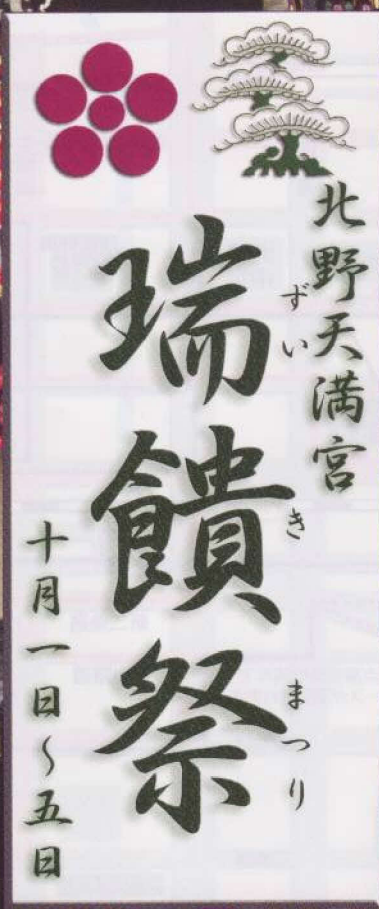 北野天満宮
瑞饋祭
ずいきまつり
十月一日〜五日